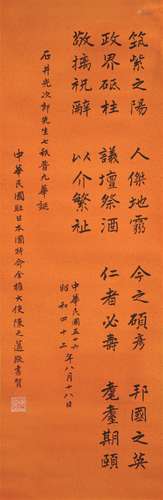 筑紫之陽　人傑地靈　今之碩彥　邦國之英
政界砥柱　議壇祭酒　仁者必壽　耄耋期頤
敬摛祝辭　以介繁祉
中華民國五十七
昭和四十三
年八月十八日
石井光次郎先生七秩晉九華誕
中華民國駐日本國特命全權大使陳之邁敬書賀